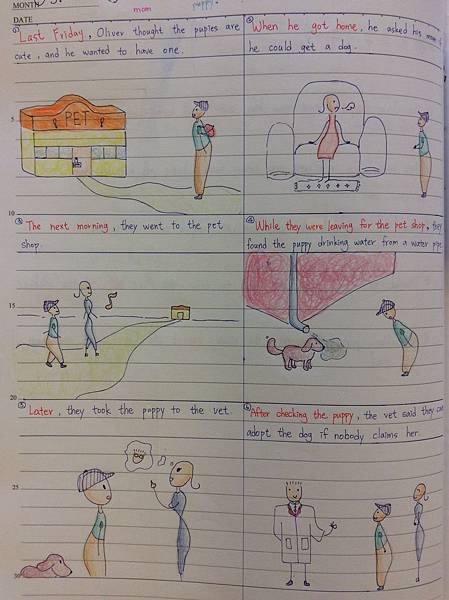 MONTH
DATE
mom
puppy
① Last Friday, Oliver thought the pupies are
cute, and he wanted to have one.
② When he got home, he asked his mom if
he could get a dog.
5
PET
10
③ The next morning, they went to the pet
shop.
④ While they were leaving for the pet shop, they
found the puppy drinking water from a water pipe
15
20
⑤ Later, they took the puppy to the vet.
⑥ After checking the puppy, the vet said they can
adopt the dog if nobody claims her.
25
30